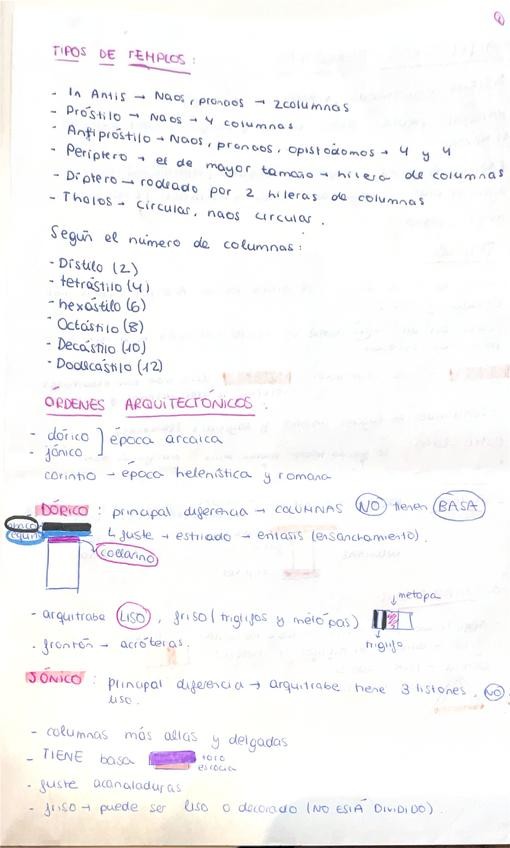 TIPOS DE TEMPLOS:
- In Antis → Naos, pronaos → 2 columnas
- Próstilo → Naos → 4 columnas
- Antipróstilo → Naos, pronaos, opistodomos → 4 y 4
- Períptero → el de mayor tamaño → hilera de columnas
- Díptero → rodeado por 2 hileras de columnas
- Tholos → circular, naos circular.
Según el número de columnas:
- Dístilo (2)
- tetrástilo (4)
- hexástilo (6)
- Octástilo (8)
- Decástilo (10)
- Dodecástilo (12)
ÓRDENES ARQUITECTÓNICOS:
- dórico ] época arcaica
- jónico
corintio → época helenística y romana
DÓRICO: principal diferencia → COLUMNAS NO tienen BASA
ábaco
equino
↳ fuste → estriado → entasis (ensanchamiento).
collarino
metopa
- arquitrabe LISO, friso (triglifos y metopas)
triglifo
- frontón → acróteras.
JÓNICO: principal diferencia → arquitrabe tiene 3 listones, NO
liso.
- columnas más altas y delgadas
- TIENE basa toro
escocia
- fuste acanaladuras
- friso → puede ser liso o decorado (NO ESTÁ DIVIDIDO).